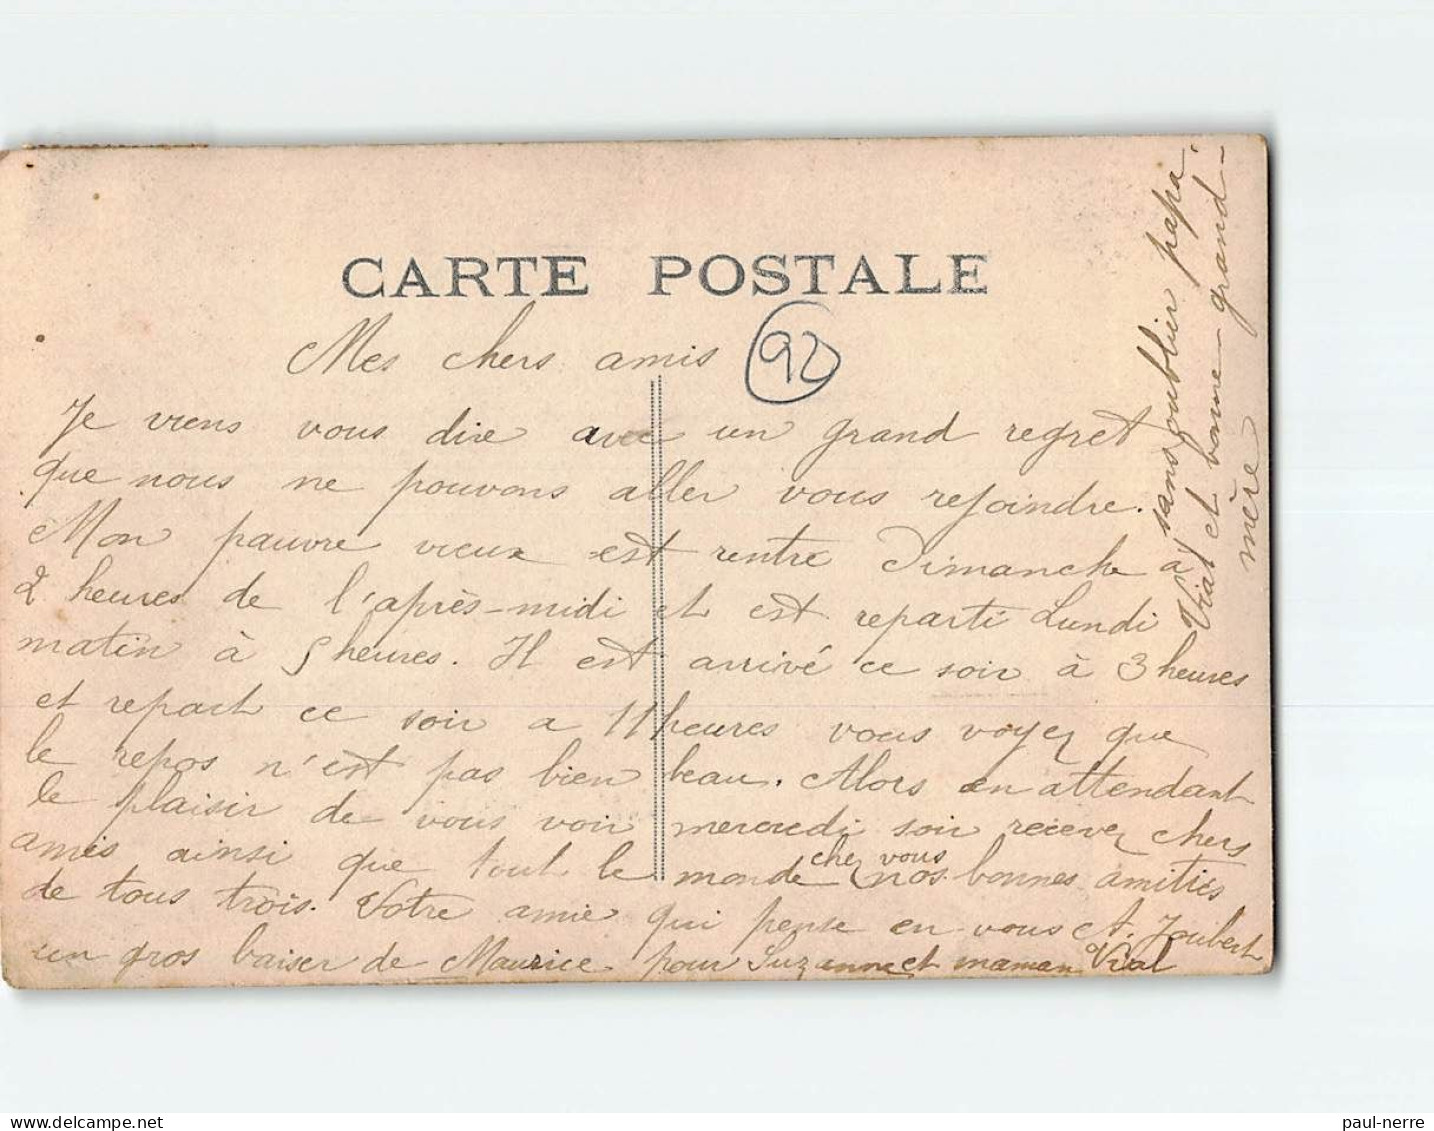 CARTE POSTALE
92
Mes chers amis
Je viens vous dire avec un grand regret
que nous ne pouvons aller vous rejoindre.
Mon pauvre vieux est rentré Dimanche à
2 heures de l'après-midi et est reparti Lundi
matin à 5 heures. Il est arrivé ce soir à 3 heures
et repart ce soir a 11 heures vous voyez que
le repos n'est pas bien beau. Alors en attendant
le plaisir de vous voir mercredi soir recevez chers
amis ainsi que tout le monde chez vous nos bonnes amitiés
de tous trois. Votre amie qui pense en vous A. Joubert
un gros baiser de Maurice pour Suzanne et maman Vial
sans oublier papa
Vial et bonne grand-
mère
paul-nerre